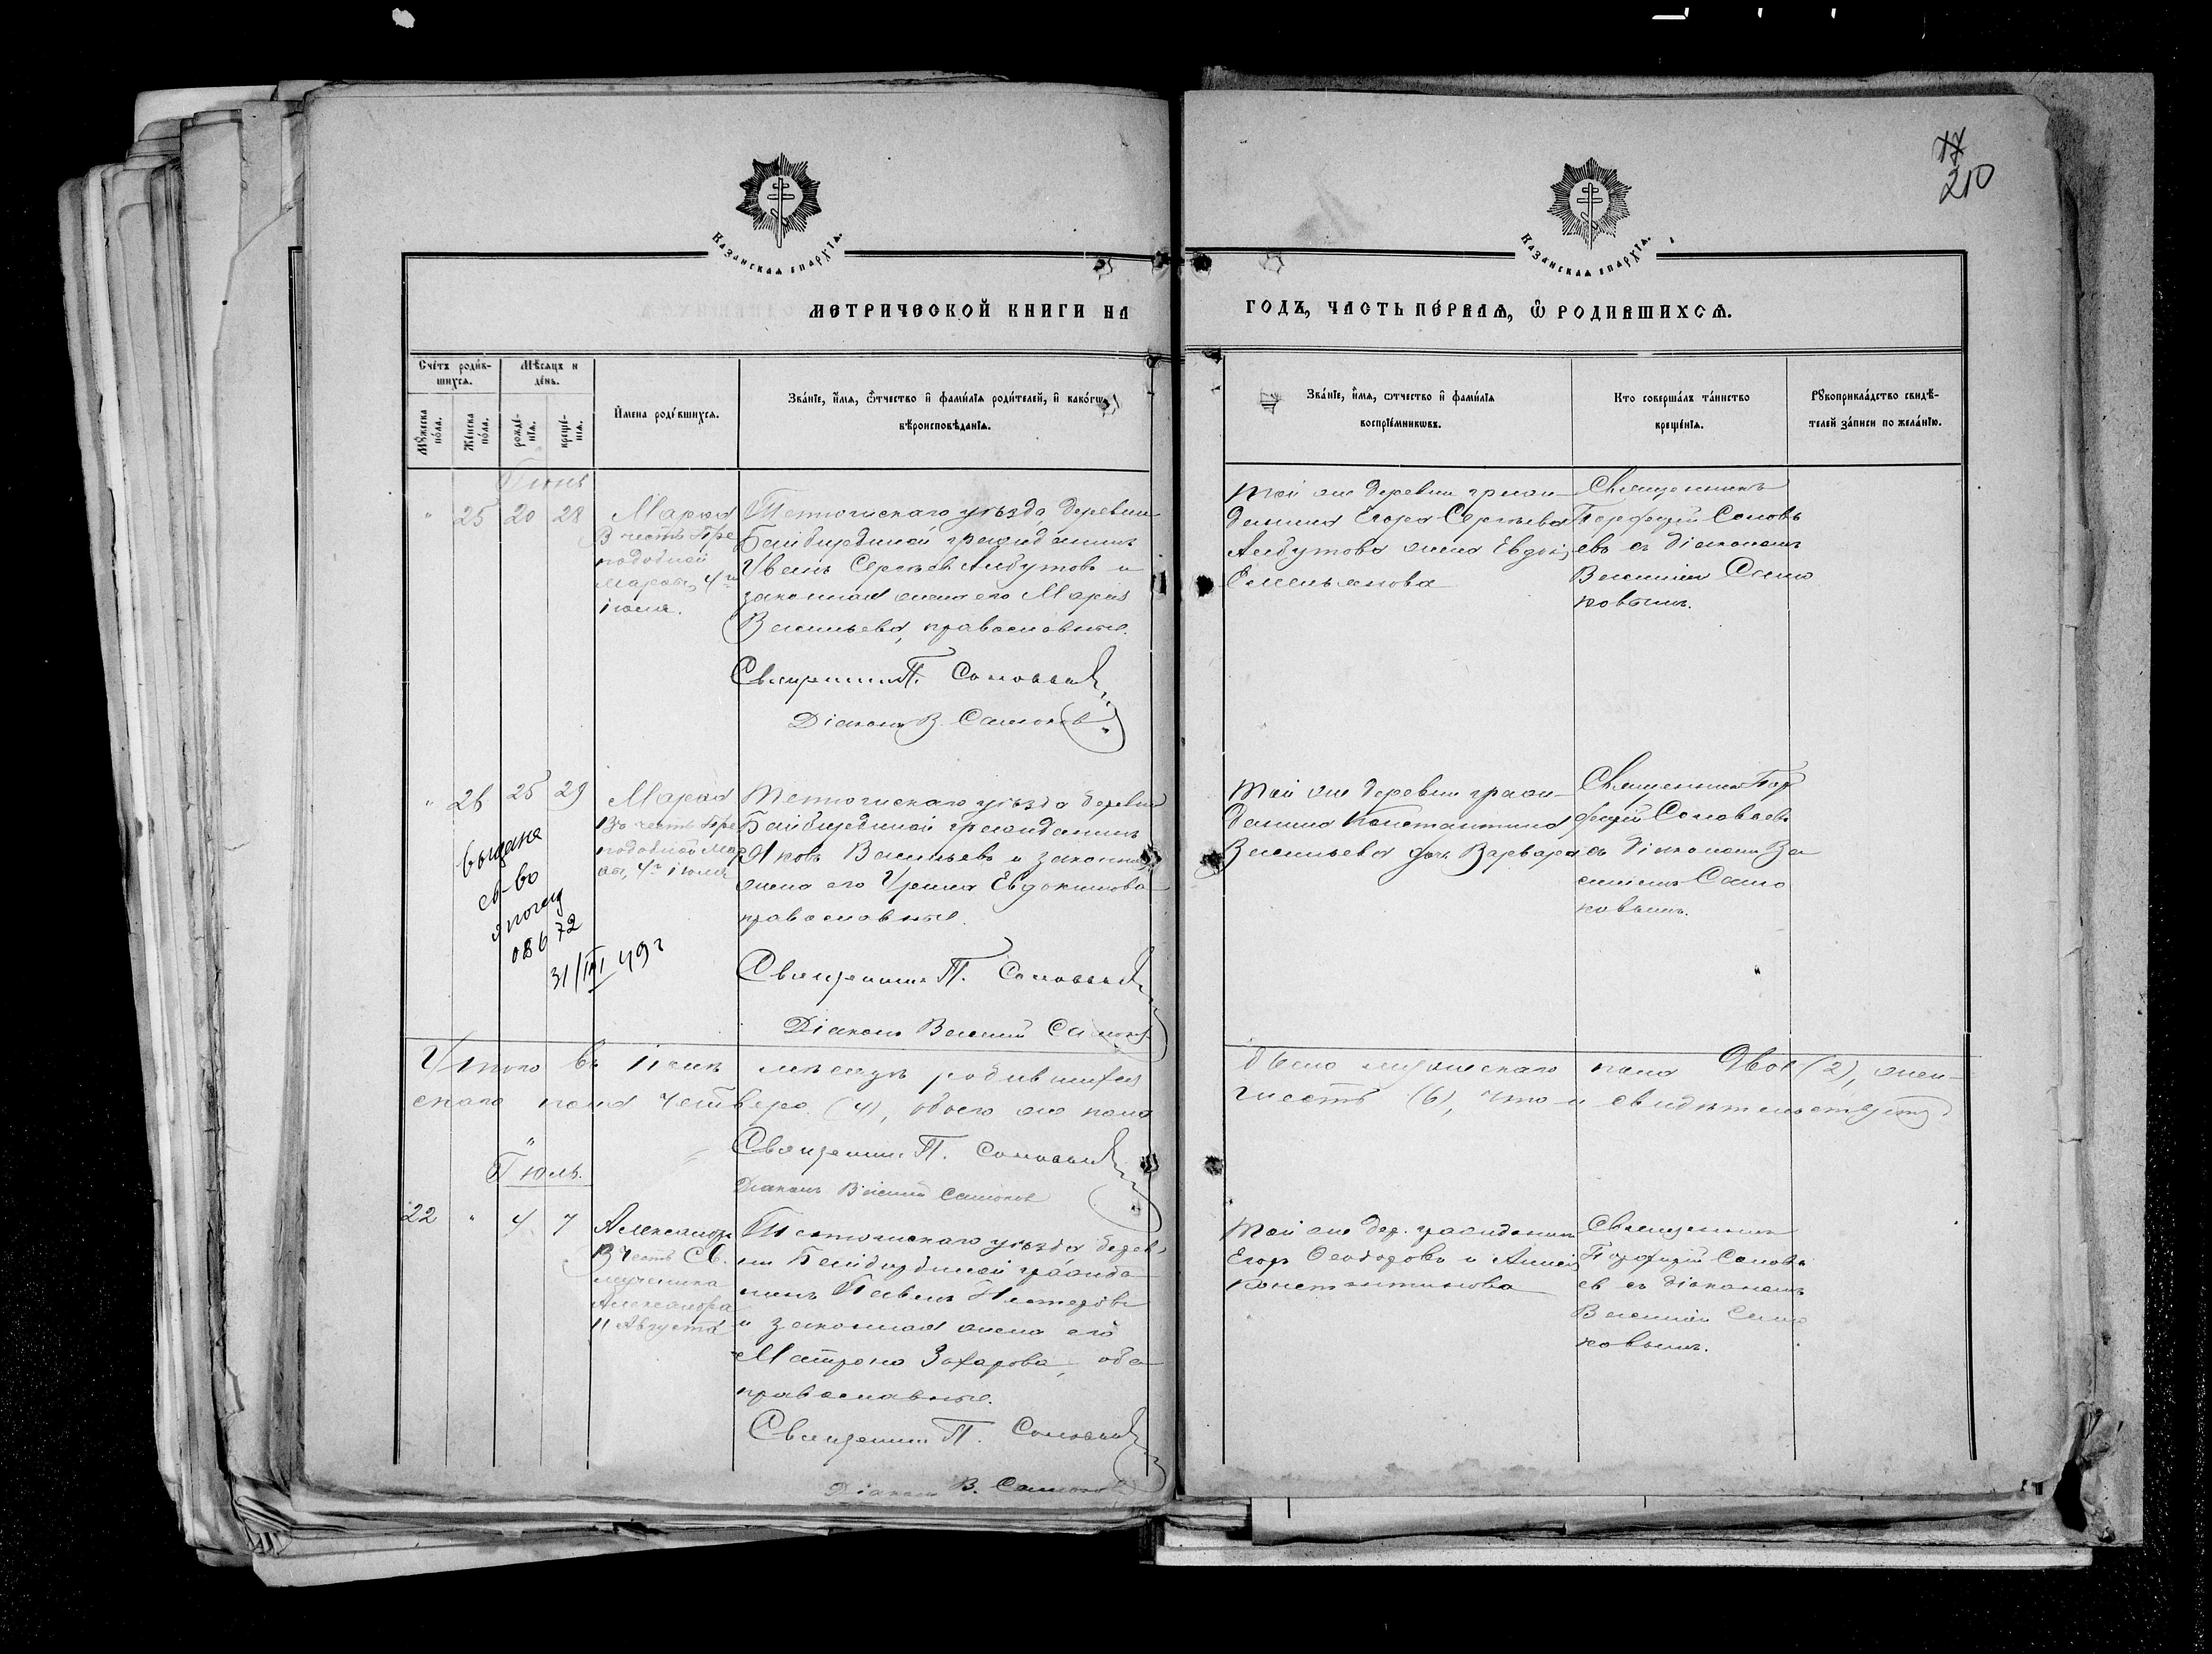 77
210
Казанская епархїѧ.
Казанская епархїѧ.
МЕТРИЧЕСКОЙ КНИГИ НА
ГОДЪ, ЧАСТЬ ПЕ́РВАѦ, Ѡ РОДИВШИХСѦ.
Сче́тъ роди́в-
шихсѧ.
Мѣ́сѧцъ и
де́нь.
Мꙋ́жеска
по́ла.
Же́нска
по́ла.
рожде́-
нїѧ.
креще́-
нїѧ.
И҆мена роди́вшихсѧ.
Зва́нїе, и҆́мѧ, ѻ҆́тчество и҆ фами́лїѧ роди́телей, и҆ како́гѡ
вѣ̀роисповѣ́данїѧ.
Зва́нїе, и҆́мѧ, ѻтчество и҆ фами́лїѧ
воспрїе́мникѡвъ.
Кто соверша́лъ та́инство
креще́нїѧ.
Рꙋ̀коприкла́дство свидѣ́-
телей за́писи по жела́нїю.
Іюнь
" 25 20 28
Марѳа
В честь Пре
подобной
Марѳы, 4го
іюля.
Тетюшскаго уѣзда деревни
Байдирдиной гражданинъ
Иванъ Сергѣевъ Албутовъ и
законная жена его Марія
Васильева, православные.
Священникъ П. Соловьевъ
Діаконъ В. Самоковъ
Той же деревни граж-
данина Егора Сергѣева
Албутова жена Евдокія
Емельянова
Священникъ
Порфирій Соловь
евъ съ діакономъ
Василіем Само
ковымъ.
" 26 25 29
Марѳа
Въ честь Пре
подобной Мар
ѳы, 4го іюля
Тетюшскаго уѣзда деревни
Байдирдиной гражданинъ
Яковъ Васильевъ и законная
жена его Ирина Евдокимова
православные.
Священникъ П. Соловьевъ
Діаконъ Василій Самоковъ
Той же деревни граж-
данина Константина
Васильева дочь Варвара
Священникъ Пор
фирій Соловьевъ
съ діакономъ Ва
силіемъ Само
ковымъ.
выдана
св-во
08672
31/III 49 г
Итого въ іюнѣ мѣсяцѣ родившихся
было мужескаго пола двое (2), жен-
скаго пола четверо (4), обоего же пола
шесть (6), что и свидѣтельствуютъ
Священникъ П. Соловьевъ
Діаконъ Василій Самоковъ
Іюль.
22 " 4 7
Александръ
В честь Св.
мученика
Александра
11 Августа
Тетюшскаго уѣзда дерев-
ни Байдирдиной гражда
нинъ Павелъ Несторовъ
и законная жена его
Матрона Захарова, оба
православные.
Священникъ П. Соловьевъ
Діаконъ В. Самоковъ
Той же дер. гражданинъ
Егоръ Ѳеодоровъ и Анна
Константинова
Священникъ
Порфирій Соловь
евъ съ діакономъ
Василіем Само
ковымъ.